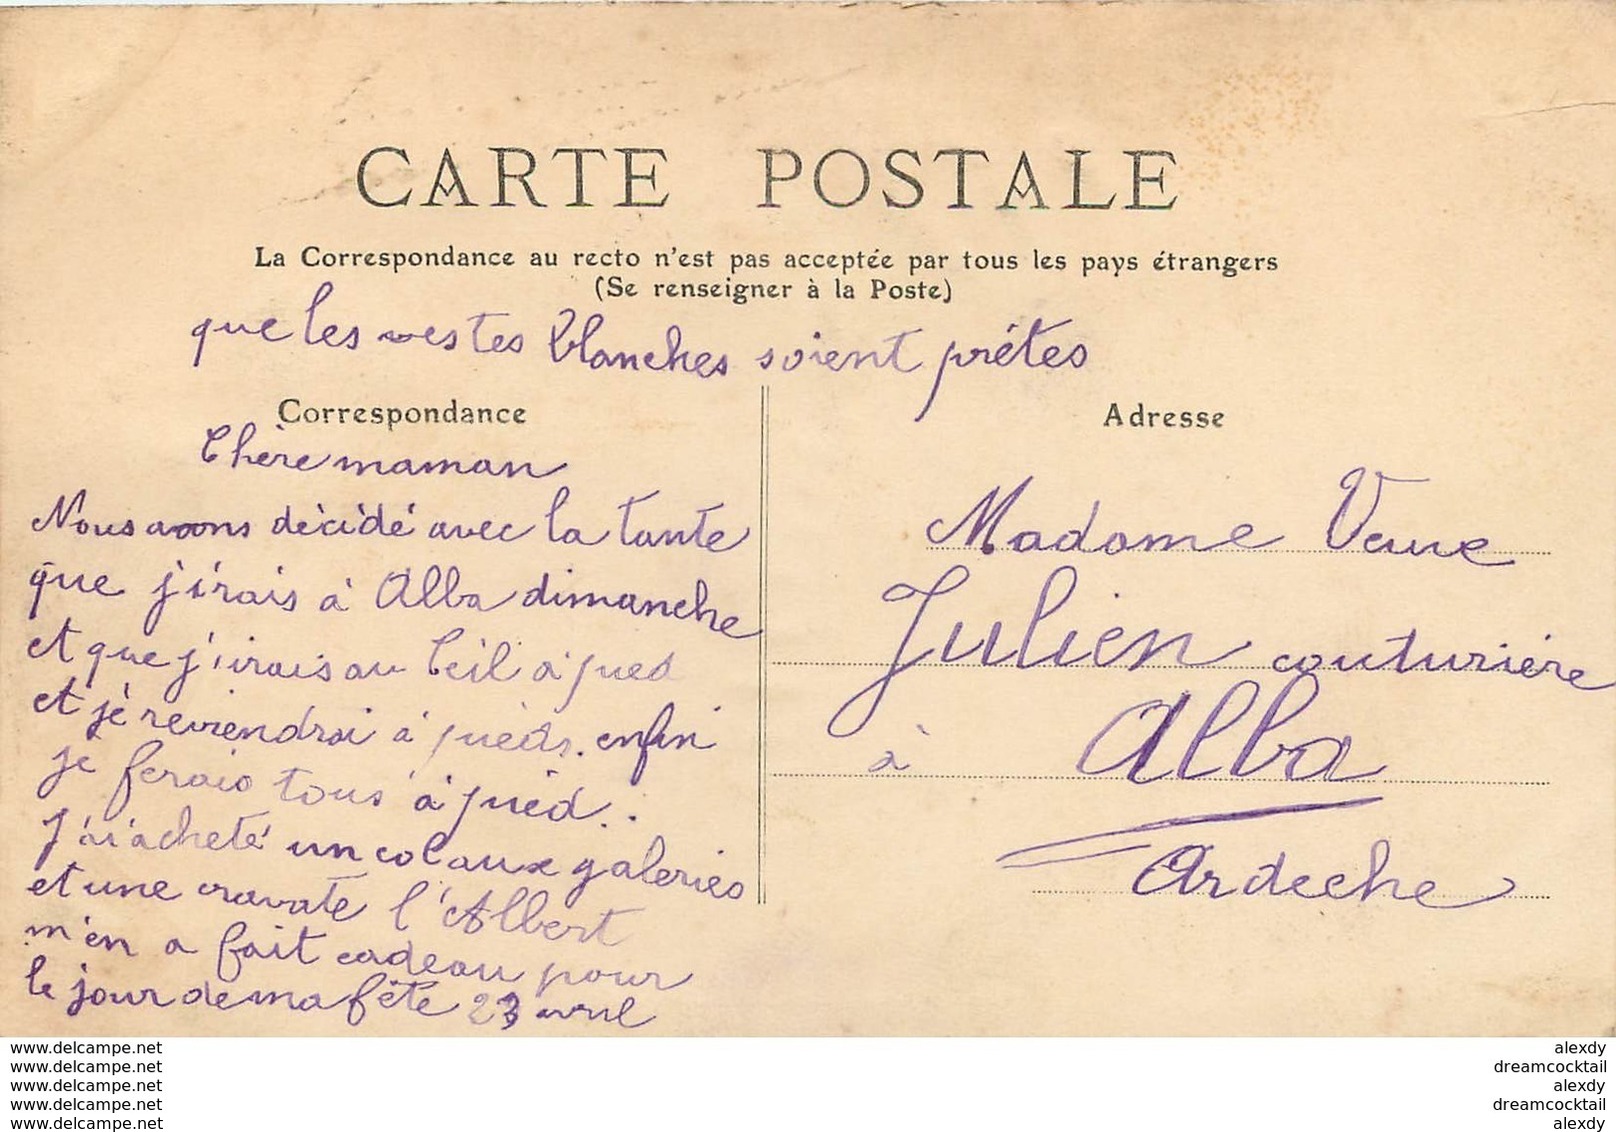 CARTE POSTALE
La Correspondance au recto n'est pas acceptée par tous les pays étrangers
(Se renseigner à la Poste)
que les vestes blanches soient prêtes
Correspondance
Chère maman
Nous avons décidé avec la tante
que j'irais à Alba dimanche
et que j'irais au Teil à pied
et je reviendrai à pieds. enfin
je ferais tous à pied..
J'ai acheté un col aux galeries
et une cravate l'Albert
m'en a fait cadeau pour
le jour de ma fête 23 avril
Adresse
Madame Veuve
Julien couturière
à Alba
Ardèche
www.delcampe.net
www.delcampe.net
www.delcampe.net
www.delcampe.net
www.delcampe.net
alexdy
dreamcocktail
alexdy
dreamcocktail
alexdy